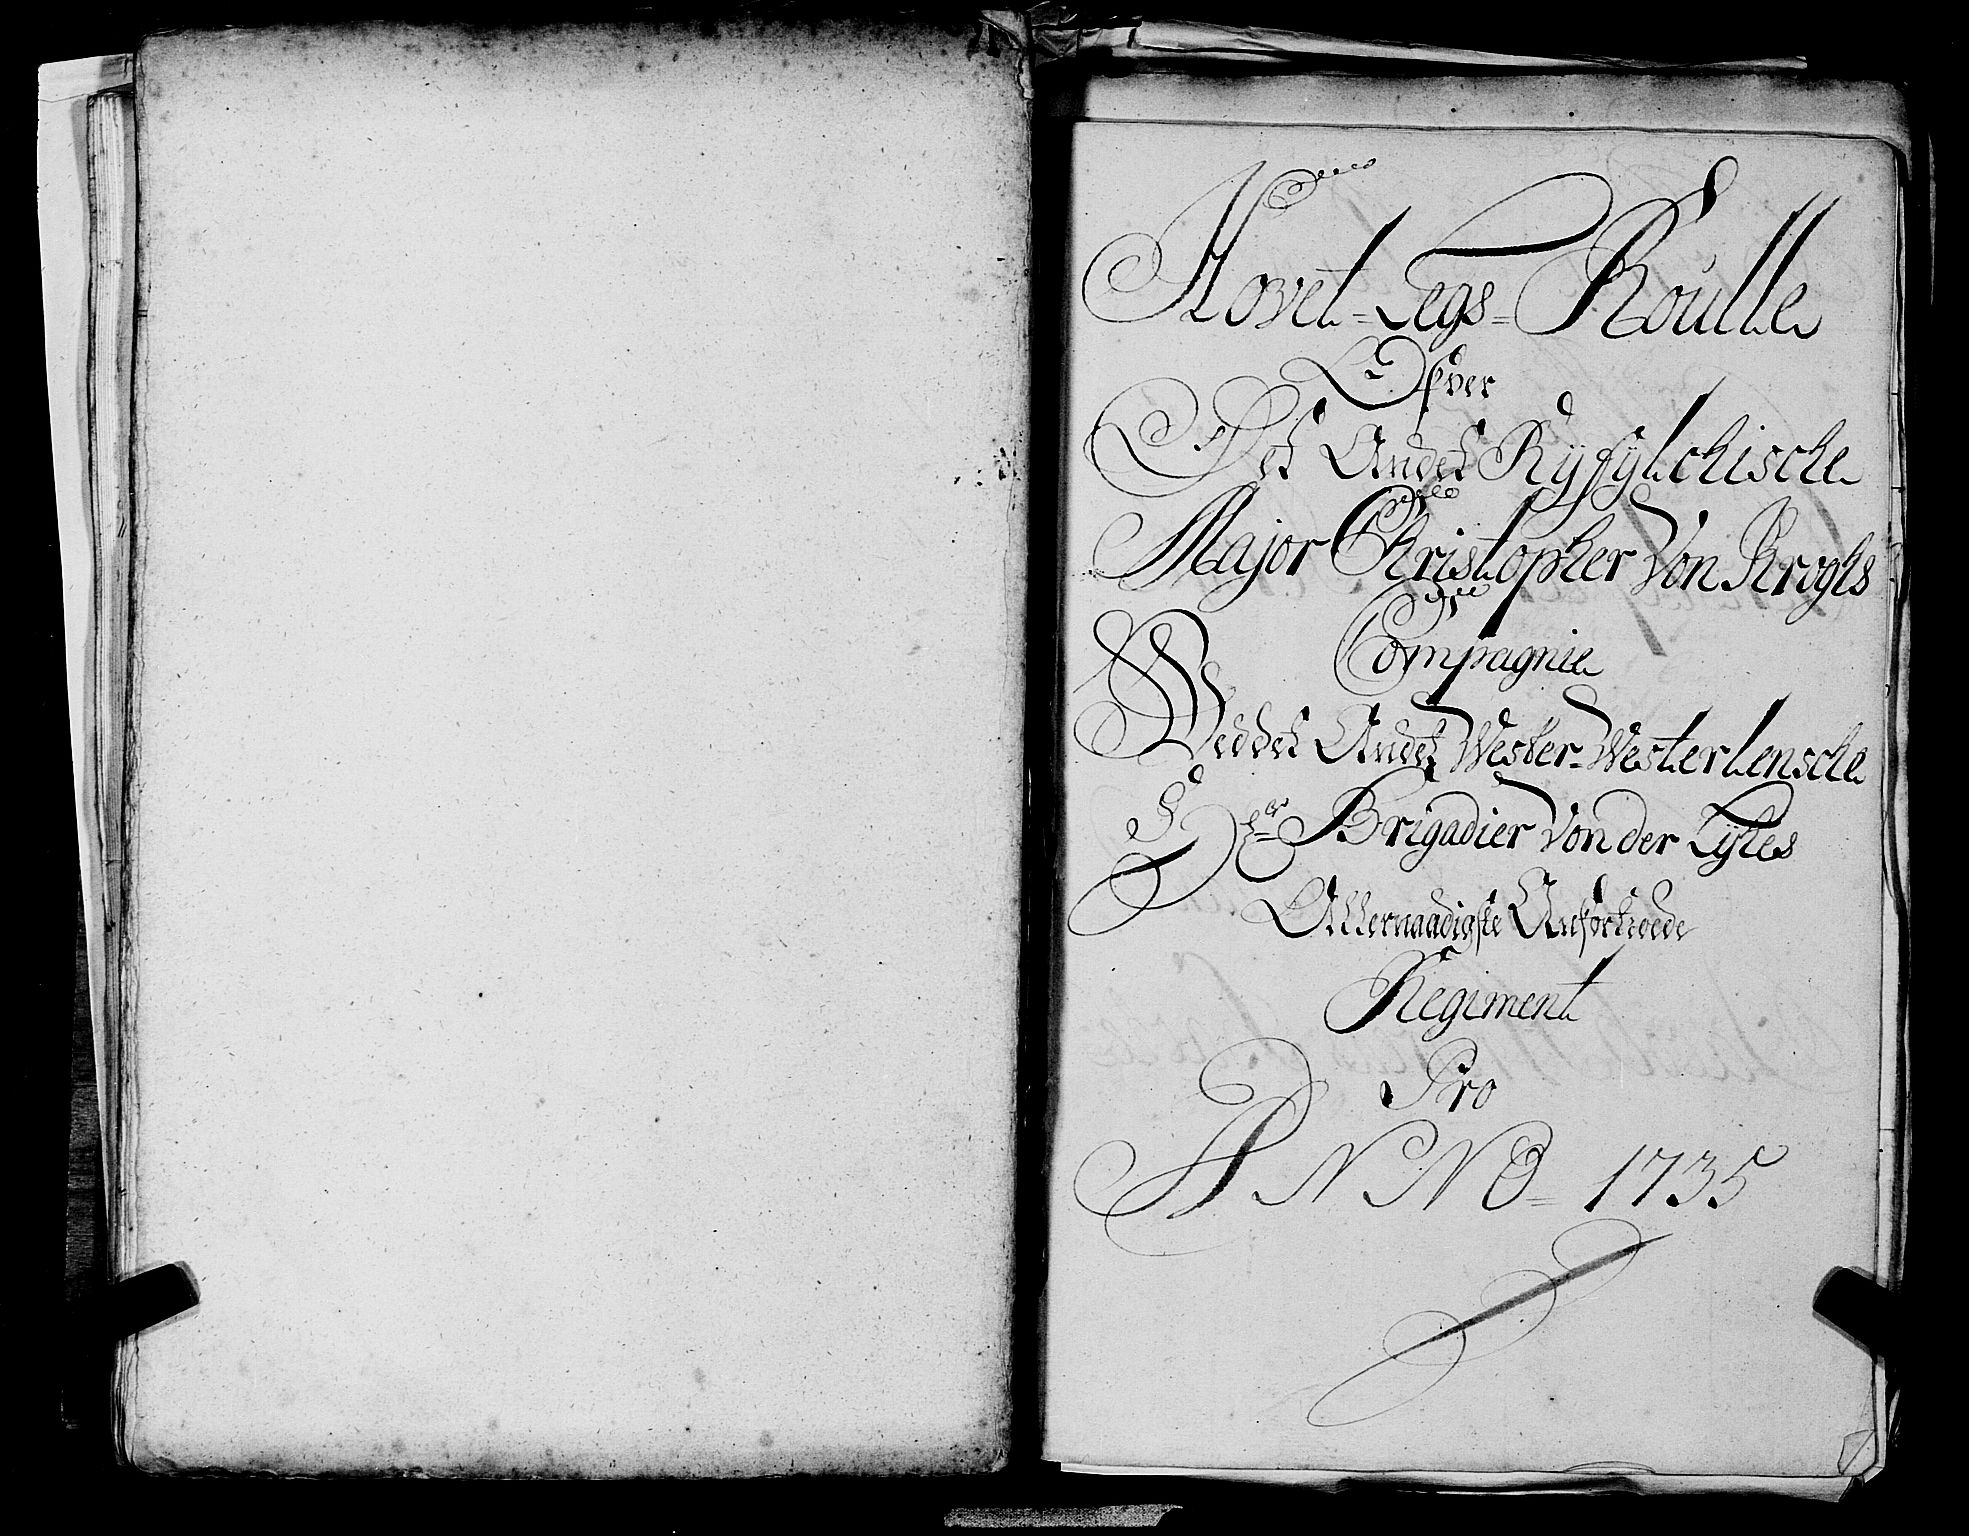 Hovet-Legs-Roulle
Ofver
Det Andet Ryfylchische
Major Christopher Von Kroghs
Compagnie
Ved det Andet Vester-Westerlensche
Hr Brigadier Von der Lyhes
Allernaadigste Anfortroede
Regiment
Pro
ANNO = 1735